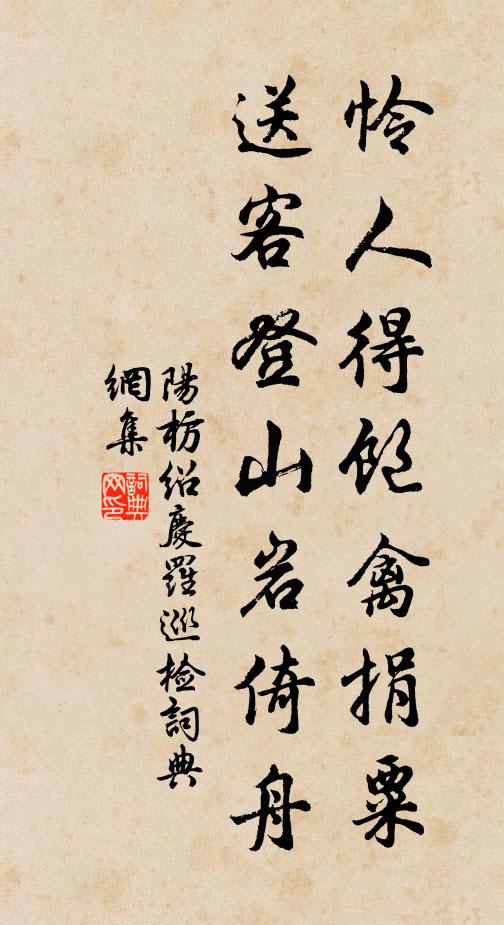 怜人得飽禽捐粟
送客登山岩倚舟
陽枋紹慶羅巡檢詞典
網集
詞典
网印